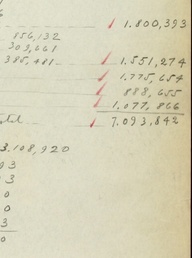 1,800,393
856,132
309,661
385,481 1,551,274
1,775,654
888,655
1,077,866
7,093,842
3,108,920
93
3
0
0
3
0